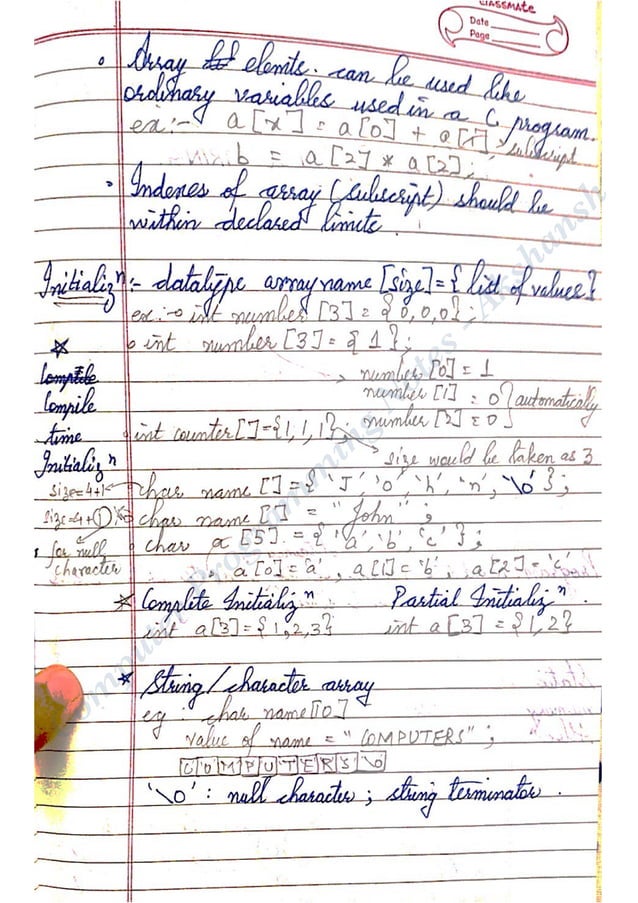 CLASSMATE
Date
Page
Array elemts. can be used like
ordinary variables used in a C program.
ex:- a[x] = a[0] + a[1] → subscript
b = a[2] * a[2];
Indenes of array (subscript) should be
within declared limits.
Initializⁿ :- datatype arrayname [size] = { list of values}
ex:- int number [3] = {0,0,0};
int number [3] = {1};
→ number [0] = 1
number [1] = 0
number [2] = 0 } automatically
Compile
Compile
time
Initializⁿ
int counter[] = {1,1,1};
size would be taken as 3
size=4+1 char name [] = { 'J', 'o', 'h', 'n', '\0' };
size=4+1 char name [] = "John" ;
for null
character
char a [5] = { 'a', 'b', 'c' };
a[0]='a', a[1]='b', a[2]='c'
* Complete Initializⁿ Partial Initializⁿ.
int a[3]={1,2,3} int a[3] = {1,2}
* String/character array
eg: char name[10]
value of name = "COMPUTERS" ;
C O M P U T E R S \0
'\0' : null character ; string terminator.
Computer Programming Notes - Akshansh